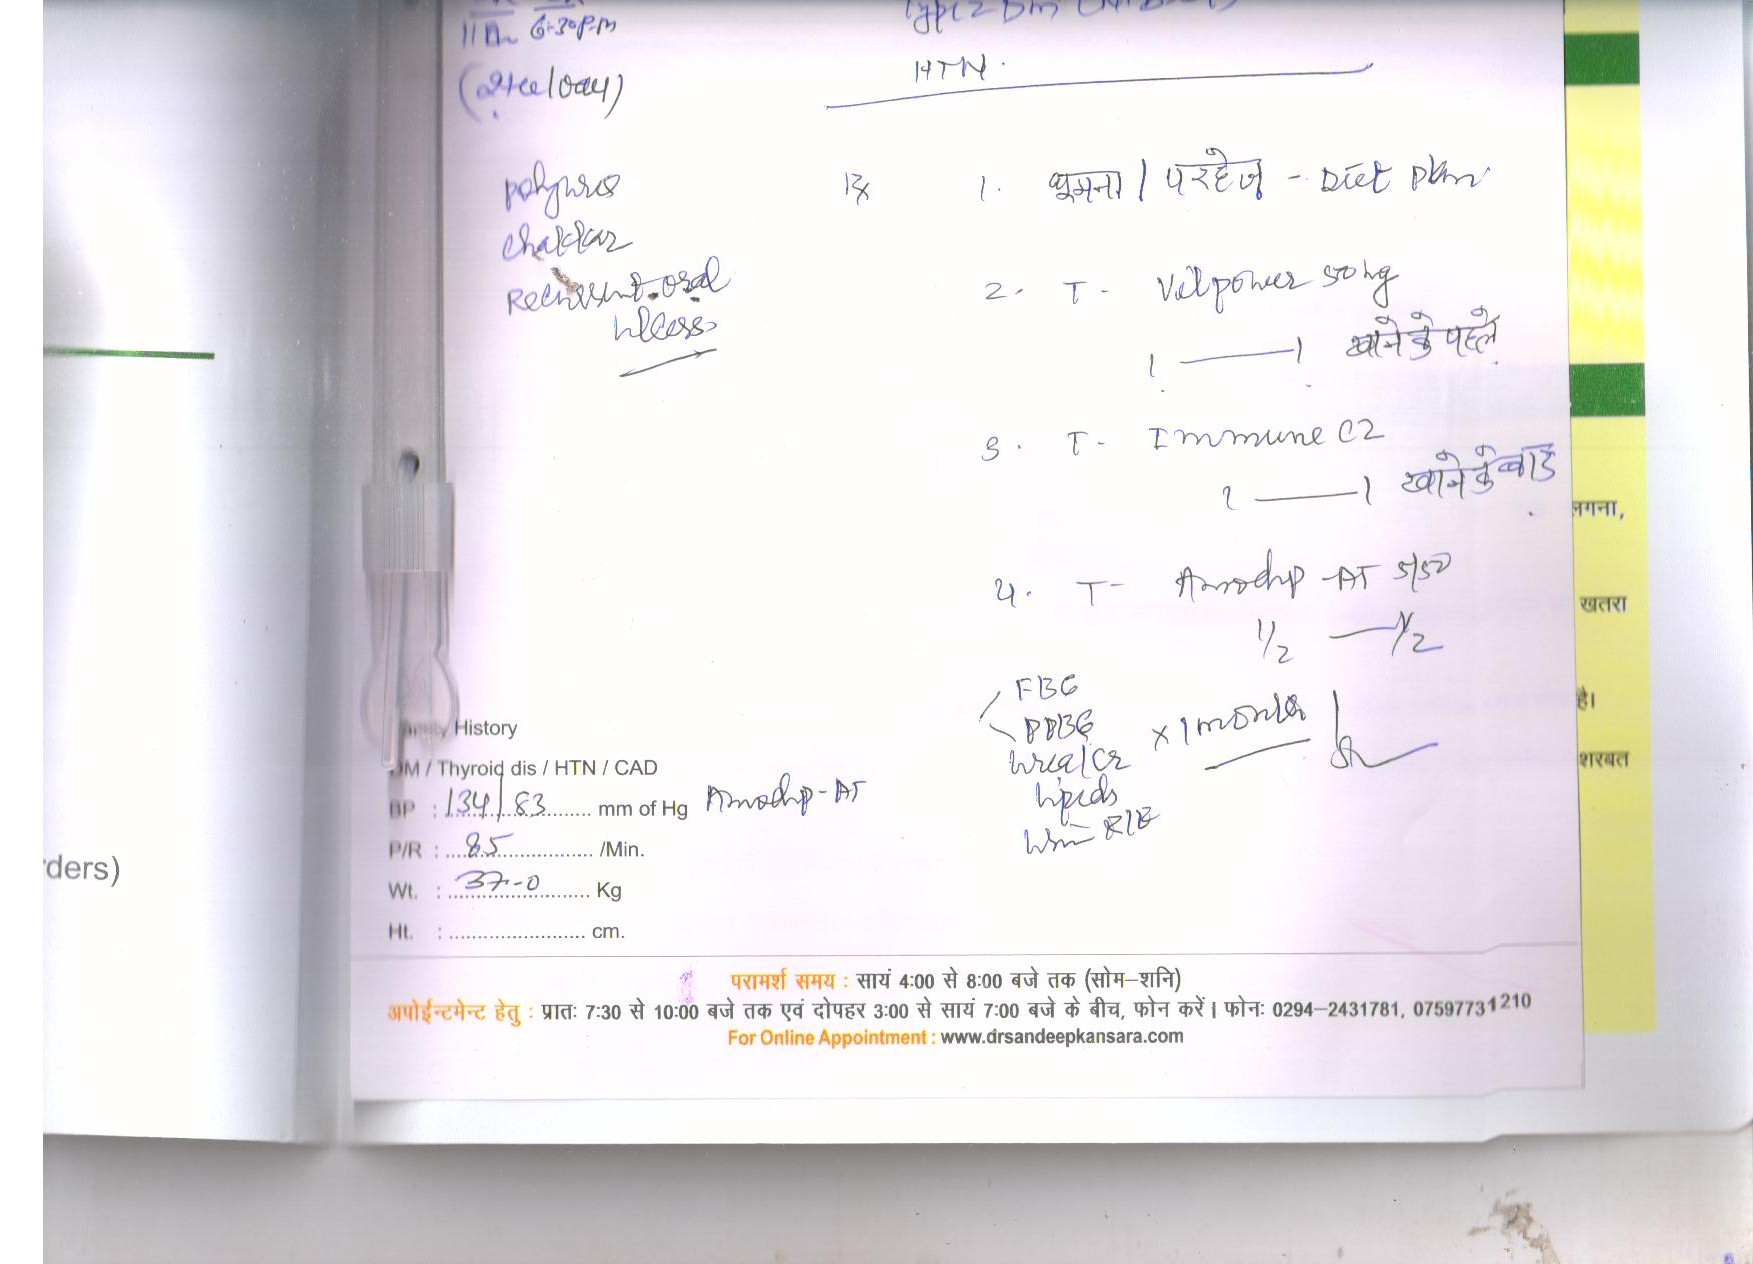 6:30 P.M
Type 2 DM
HTN.
polyuria
chakkar
Recurrent oral
ulcers
Rx
1. घूमना / परहेज - Diet plan
2. T - Vilpower 50 mg
1 — 1 खाने के पहले
3. T - Immune CZ
1 — 1 खाने के बाद
4. T - Amodep - AT 5/50
1/2 — 1/2
FBG
PPBG
x 1 month
urea/cr
lipids
History
DM / Thyroid dis / HTN / CAD
BP : 134/83 mm of Hg Amodep - AT
P/R : 85 /Min.
Wt. : 37-0 Kg
Ht. : cm.
परामर्श समय : सायं 4:00 से 8:00 बजे तक (सोम–शनि)
अपोईन्टमेन्ट हेतु : प्रातः 7:30 से 10:00 बजे तक एवं दोपहर 3:00 से सायं 7:00 बजे के बीच, फोन करें। फोनः 0294–2431781, 07597731210
For Online Appointment : www.drsandeepkansara.com
ders)
लगना,
खतरा
है।
शरबत